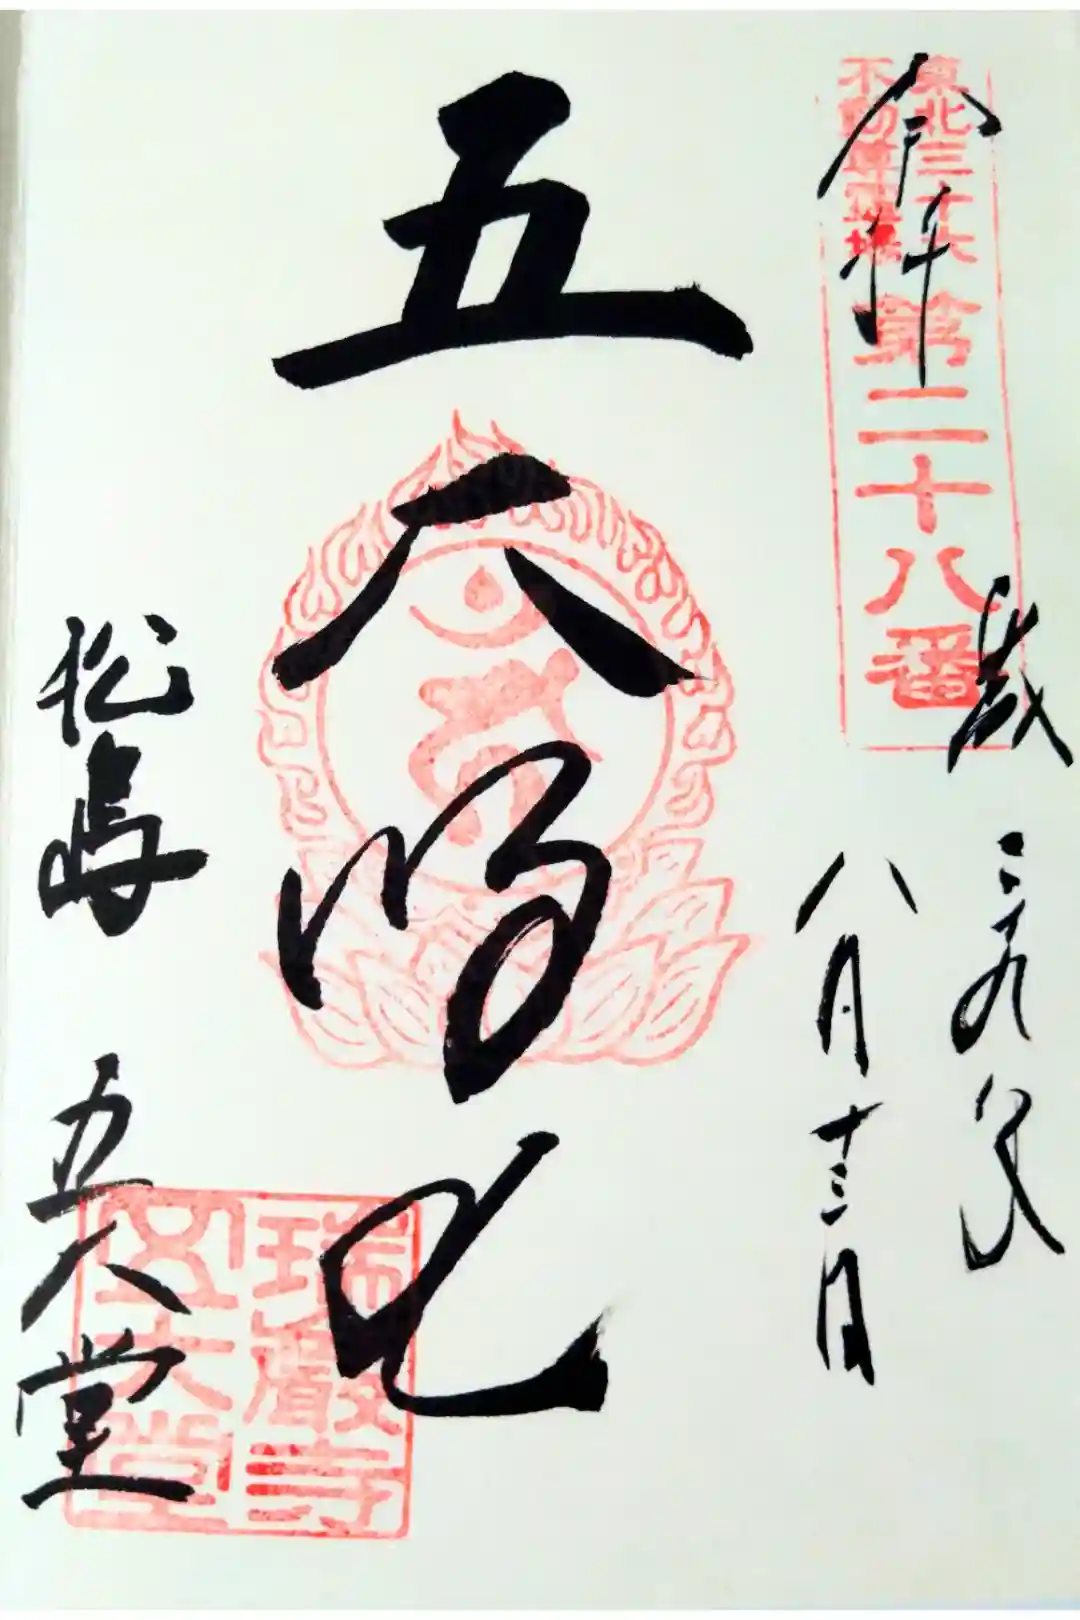 東北三十六
不動尊霊場
第二十八番
二十九年
八月十三日
五大明王
松嶋 五大堂
瑞巌寺
五大堂